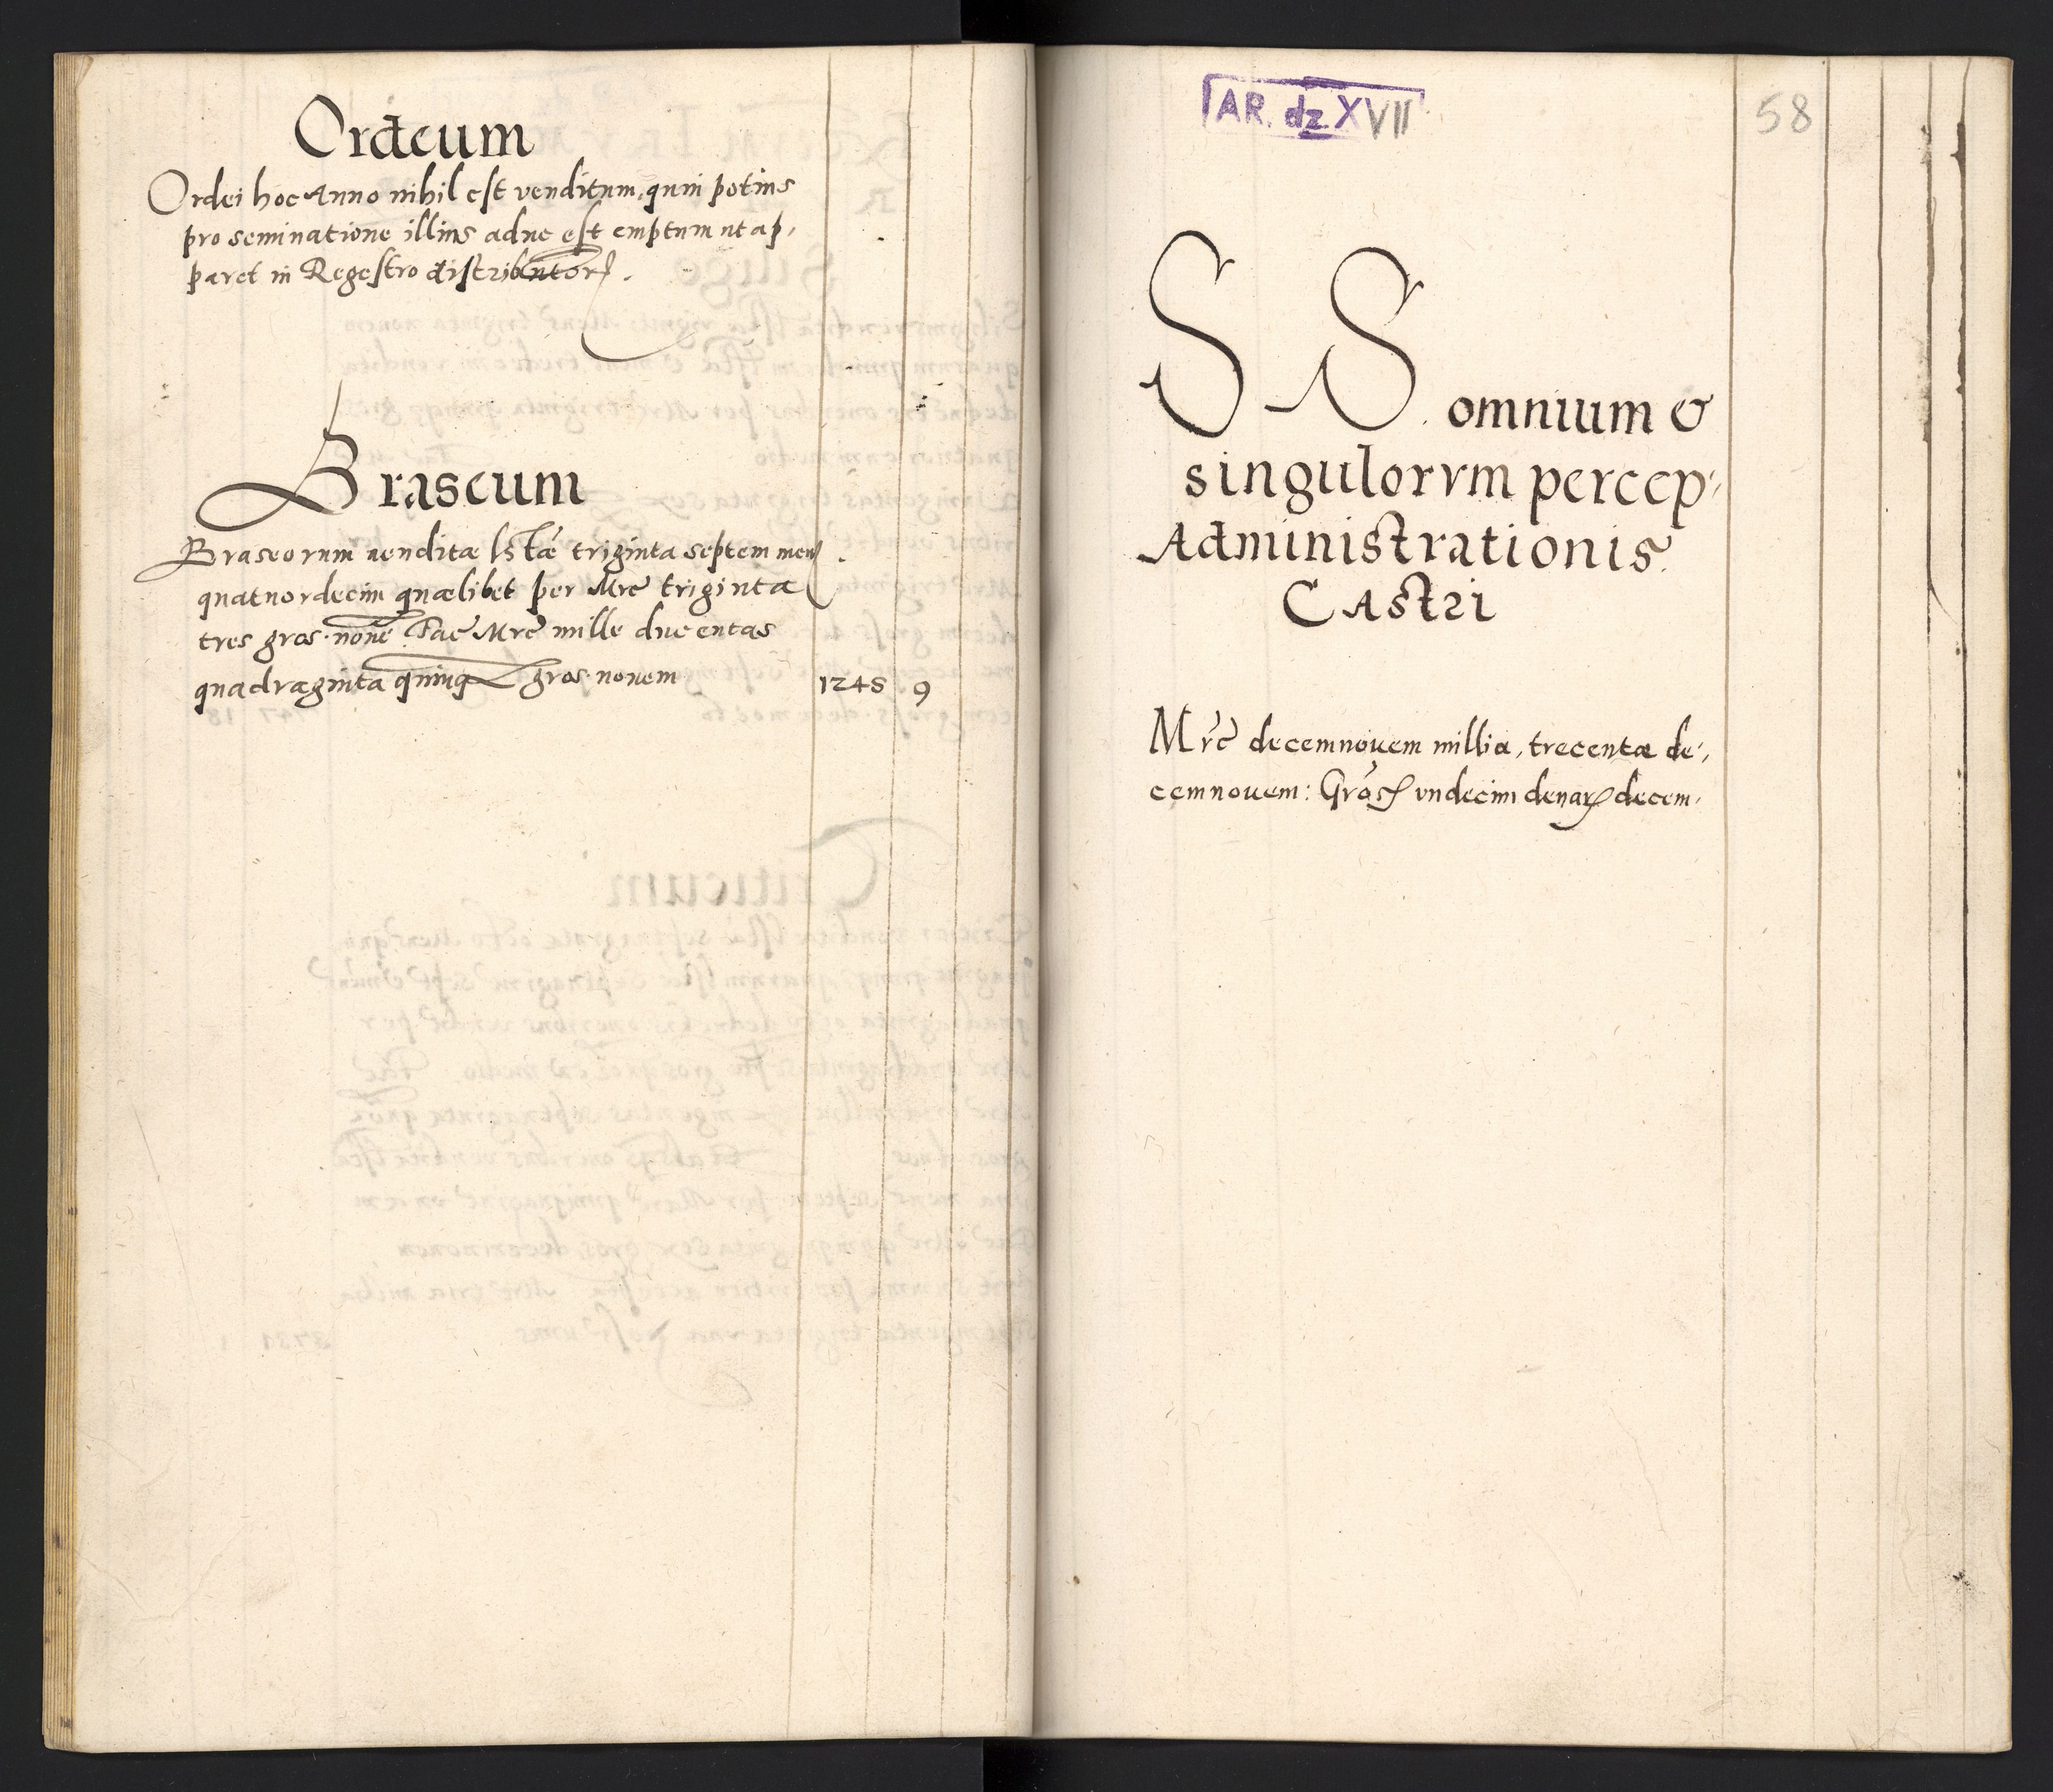 Ordeum
Ordei hoc Anno nihil est venditum, quin potius
pro seminatione illius adhuc est emptum ut ap,
paret in Regestro distributor.
Braseum
Braseorum venditæ lstæ triginta septem men
quatuordecim quælibet per Mrc triginta
tres gros. none. Fac Mrc mille ducentas
quadraginta quinq gros. novem 1245 9
AR. dz XVII
58
S S. omnium &
singulorvm percep:
Administrationis
CAstri
Mrc decemnovem millia, trecentæ de:,
cemnovem: Gros vndecim denar decem.